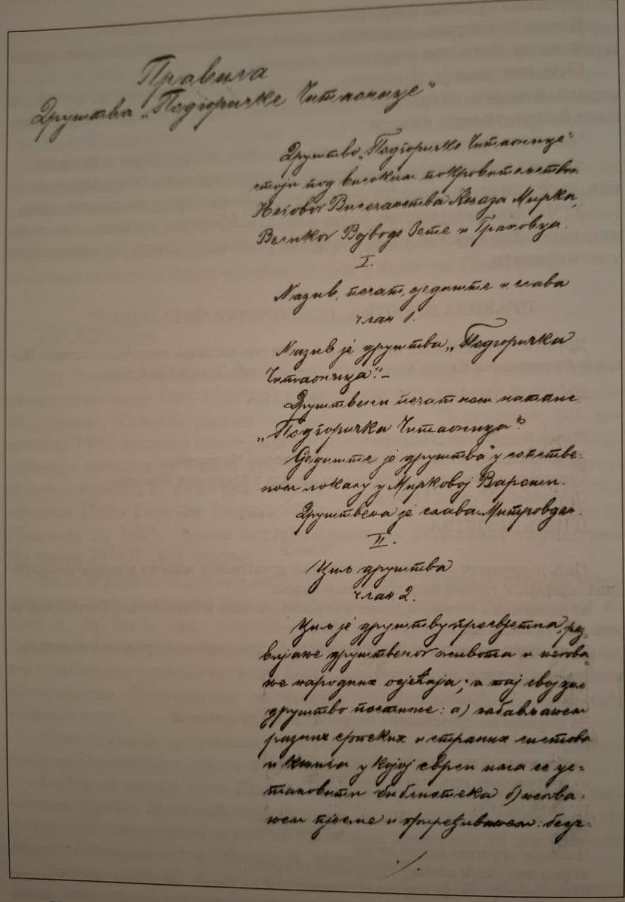 Правила
Друштва „Подгоричке Читаонице“
Друштво „Подгоричке Читаонице“
стоји под високим покровитељством
Његовог Височанства Књаза Мирка,
Великог Војводе Зете и Грахова.
I.
Назив, печат, сједиште и слава
члан 1.
Назив је друштва „Подгоричка
Читаоница“.–
Друштвени печат носи натпис
„Подгоричка Читаоница“.
Сједиште је друштва у сопстве-
ном локалу у Мирковој Вароши.
Друштвена је слава Митровдан.
II.
Циљ друштва
члан 2.
Циљ је друштву просвјета, раз
вијање друштвеног живота и његова
ње народних осјећаја; а тај свој циљ
друштво постиже: а) набављањем
разних српских и страних листова
и књига у којој сврси има се ус-
тановити библиотека б) његова
њем пјесме и приређивањем: бесје-
./.